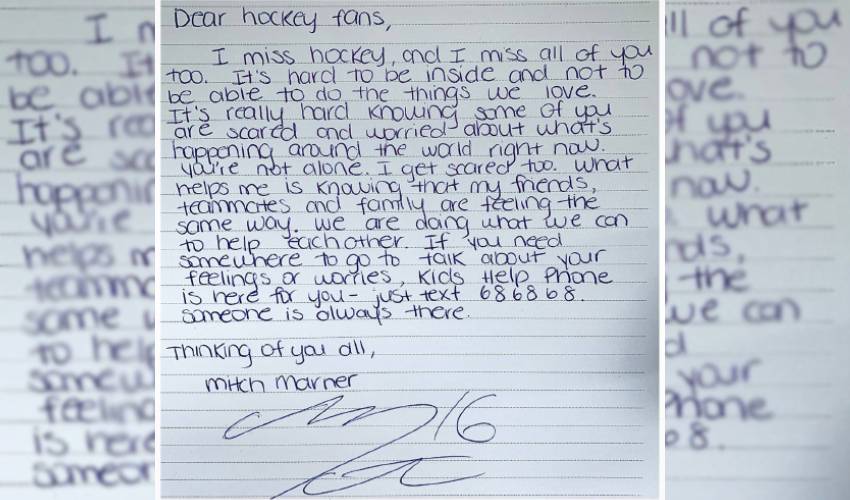 Dear hockey fans,
I miss hockey, and I miss all of you
too. It's hard to be inside and not to
be able to do the things we love.
It's really hard knowing some of you
are scared and worried about what's
happening around the world right now.
You're not alone. I get scared too. What
helps me is knowing that my friends,
teammates and family are feeling the
same way. We are doing what we can
to help eachother. If you need
somewhere to go to talk about your
feelings or worries, Kids Help Phone
is here for you - just text 686868.
Someone is always there.
Thinking of you all,
Mitch Marner
16